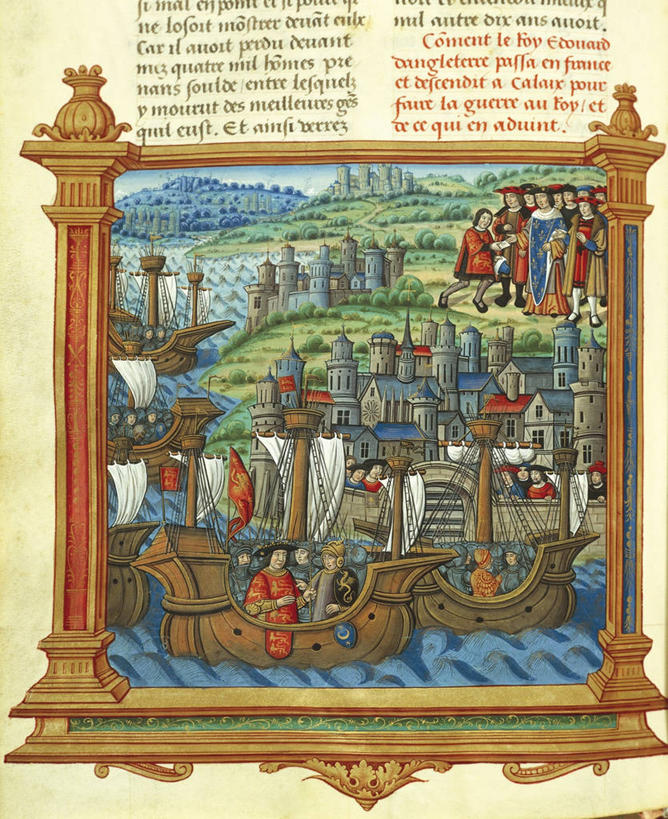 si mal en point et si pouvre qͥl
ne losoit mōstrer devāt eulx
Car il avoit perdu devant
miz quatre mil hōmes pre
nans soulde / entre lesquelz
y mourut des meilleures gēs
quil eust. Et ainsi verrez
mil autre dix ans avoit.
Cōment le Roy Edouard
dangleterre passa en france
et descendit a Calaix pour
faire la guerre au Roy / et
de ce qui en advint.